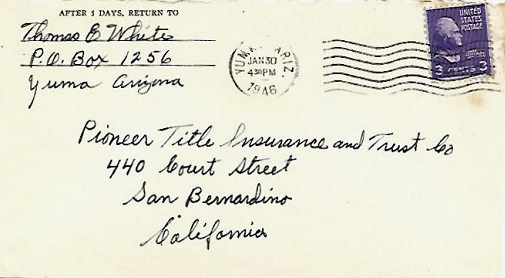 AFTER 5 DAYS, RETURN TO
Thomas E White
P.O. Box 1256
Yuma Arizona
YUMA, ARIZ.
JAN 30
4 30 PM
1946
UNITED
STATES
POSTAGE
3 CENTS 3
Pioneer Title Insurance and Trust Co
440 Court Street
San Bernardino
California